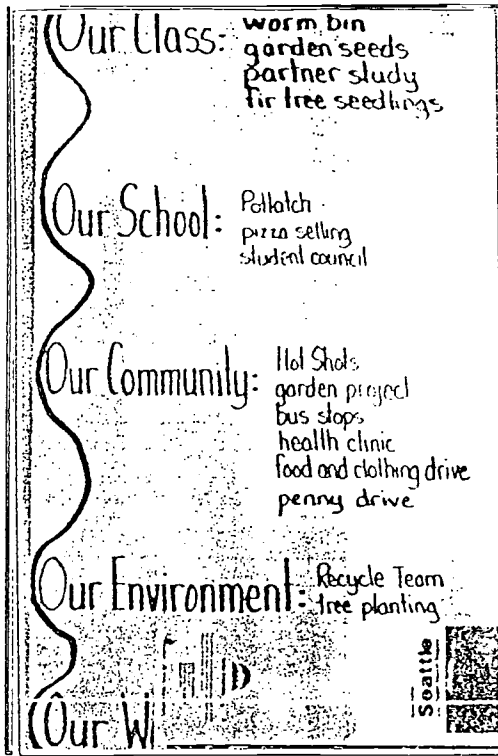 Our Class: worm bin
garden seeds
partner study
fir tree seedlings
Our School: Potlatch
pizza selling
student council
Our Community: Hot Shots
garden project
bus stops
health clinic
food and clothing drive
penny drive
Our Environment: Recycle Team
tree planting
Seattle
Our